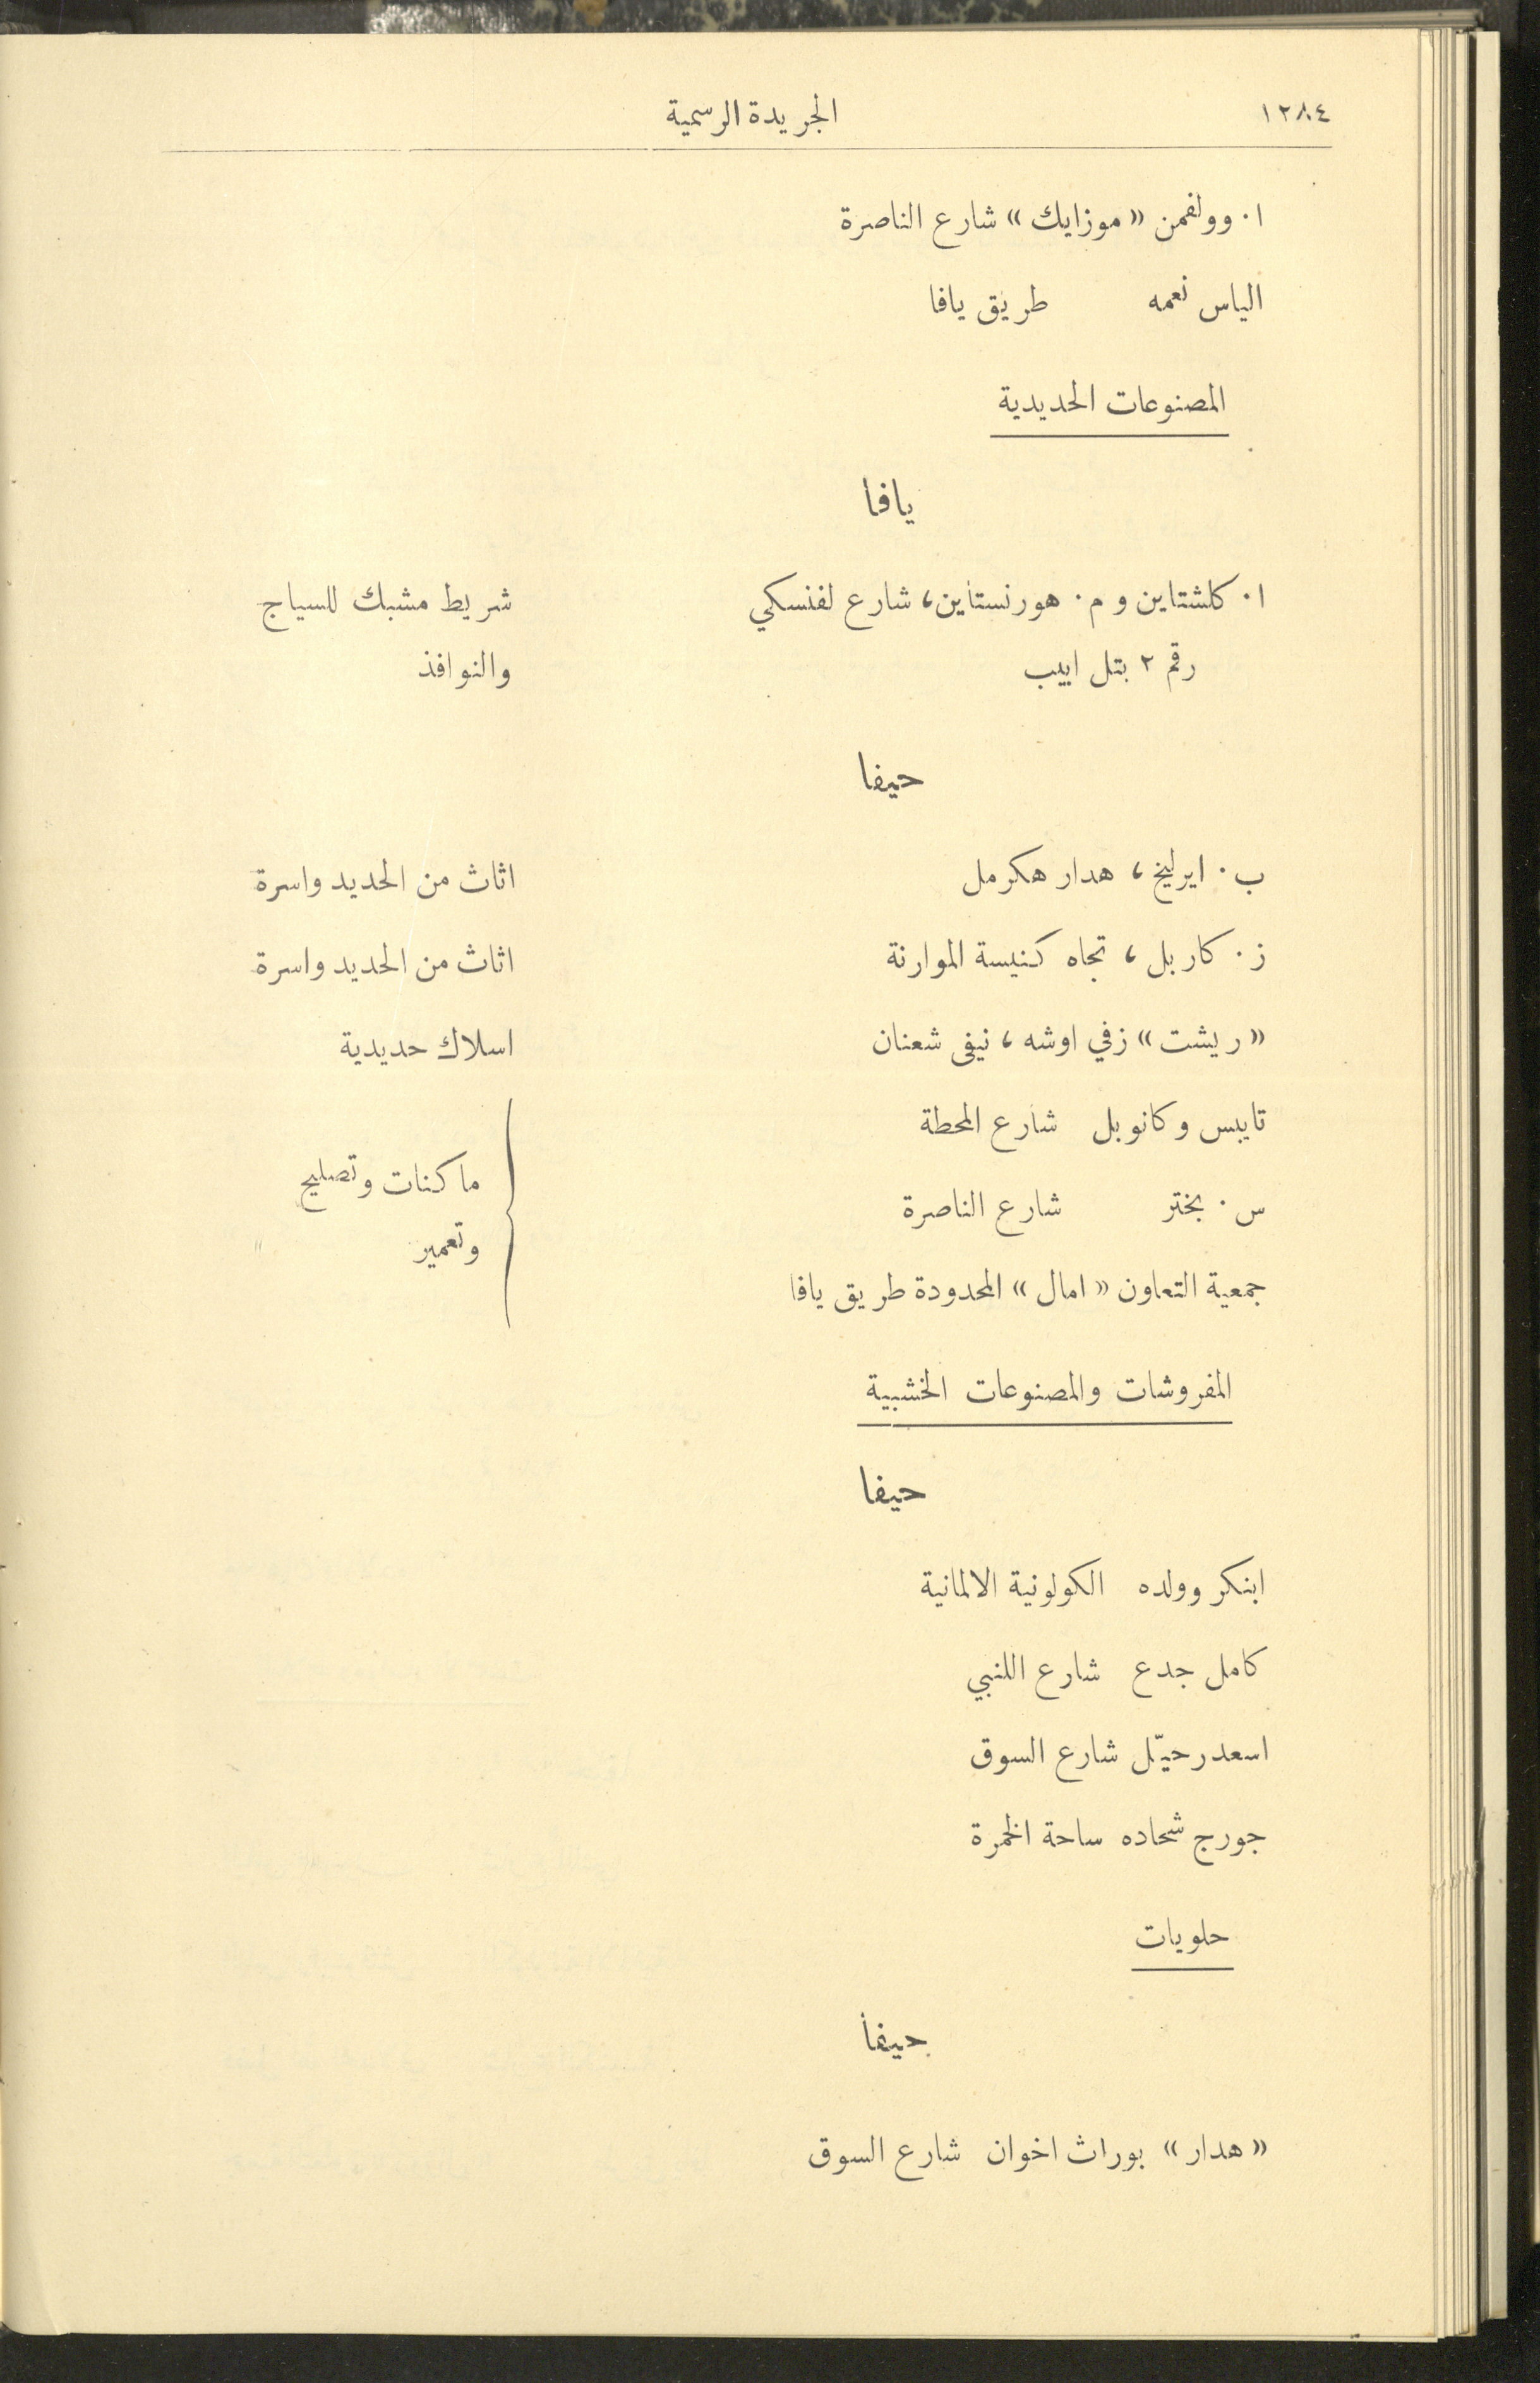 ١٢٨٤ الجريدة الرسمية
ا٠ وولفمن «موزايك» شارع الناصرة
الياس نعمه طريق يافا
المصنوعات الحديدية
يافا
ا٠ كلشتاين و م٠ هورنستاين، شارع لفنسكي شريط مشبك للسياج
رقم ٢ بتل ابيب والنوافذ
حيفا
ب٠ ايرليخ، هدار هكرمل اثاث من الحديد واسرة
ز٠ كاربل، تجاه كنيسة الموارنة اثاث من الحديد واسرة
«ريشت» زفي اوشه، نيفى شعنان اسلاك حديدية
تايبس وكانوبل شارع المحطة
ماكنات وتصليح
س٠ بختر شارع الناصرة
وتعمير
جمعية التعاون «امال» المحدودة طريق يافا
المفروشات والمصنوعات الخشبية
حيفا
ابنكر وولده الكولونية الالمانية
كامل جدع شارع اللنبي
اسعد رحيّل شارع السوق
جورج شحاده ساحة الخمرة
حلويات
حيفا
«هدار» بوراث اخوان شارع السوق